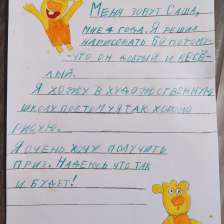 Меня зовут Саша,
мне 4 года. Я решил
нарисовать Бо потому-
что он добрый и весё-
лый.
Я хожу в художественную
школу поэтому я так хорошо
рисую.
Я очень хочу получить
приз. Надеюсь что так
и будет!